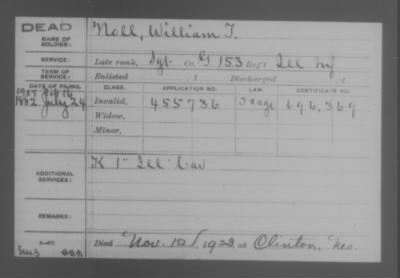 DEAD
NAME OF SOLDIER: Noll, William T.
SERVICE: Late rank, Sgt Co. G 153 Reg't Ill Inf
TERM OF SERVICE: Enlisted , 1 Discharged , 1
DATE OF FILING. CLASS. APPLICATION NO. LAW. CERTIFICATE NO.
1882 July 24 Invalid, 455736 696,369
Widow,
Minor,
ADDITIONAL SERVICES: K 1" Ill Cav
REMARKS:
Died Nov. 1922 at Clinton, Mo.